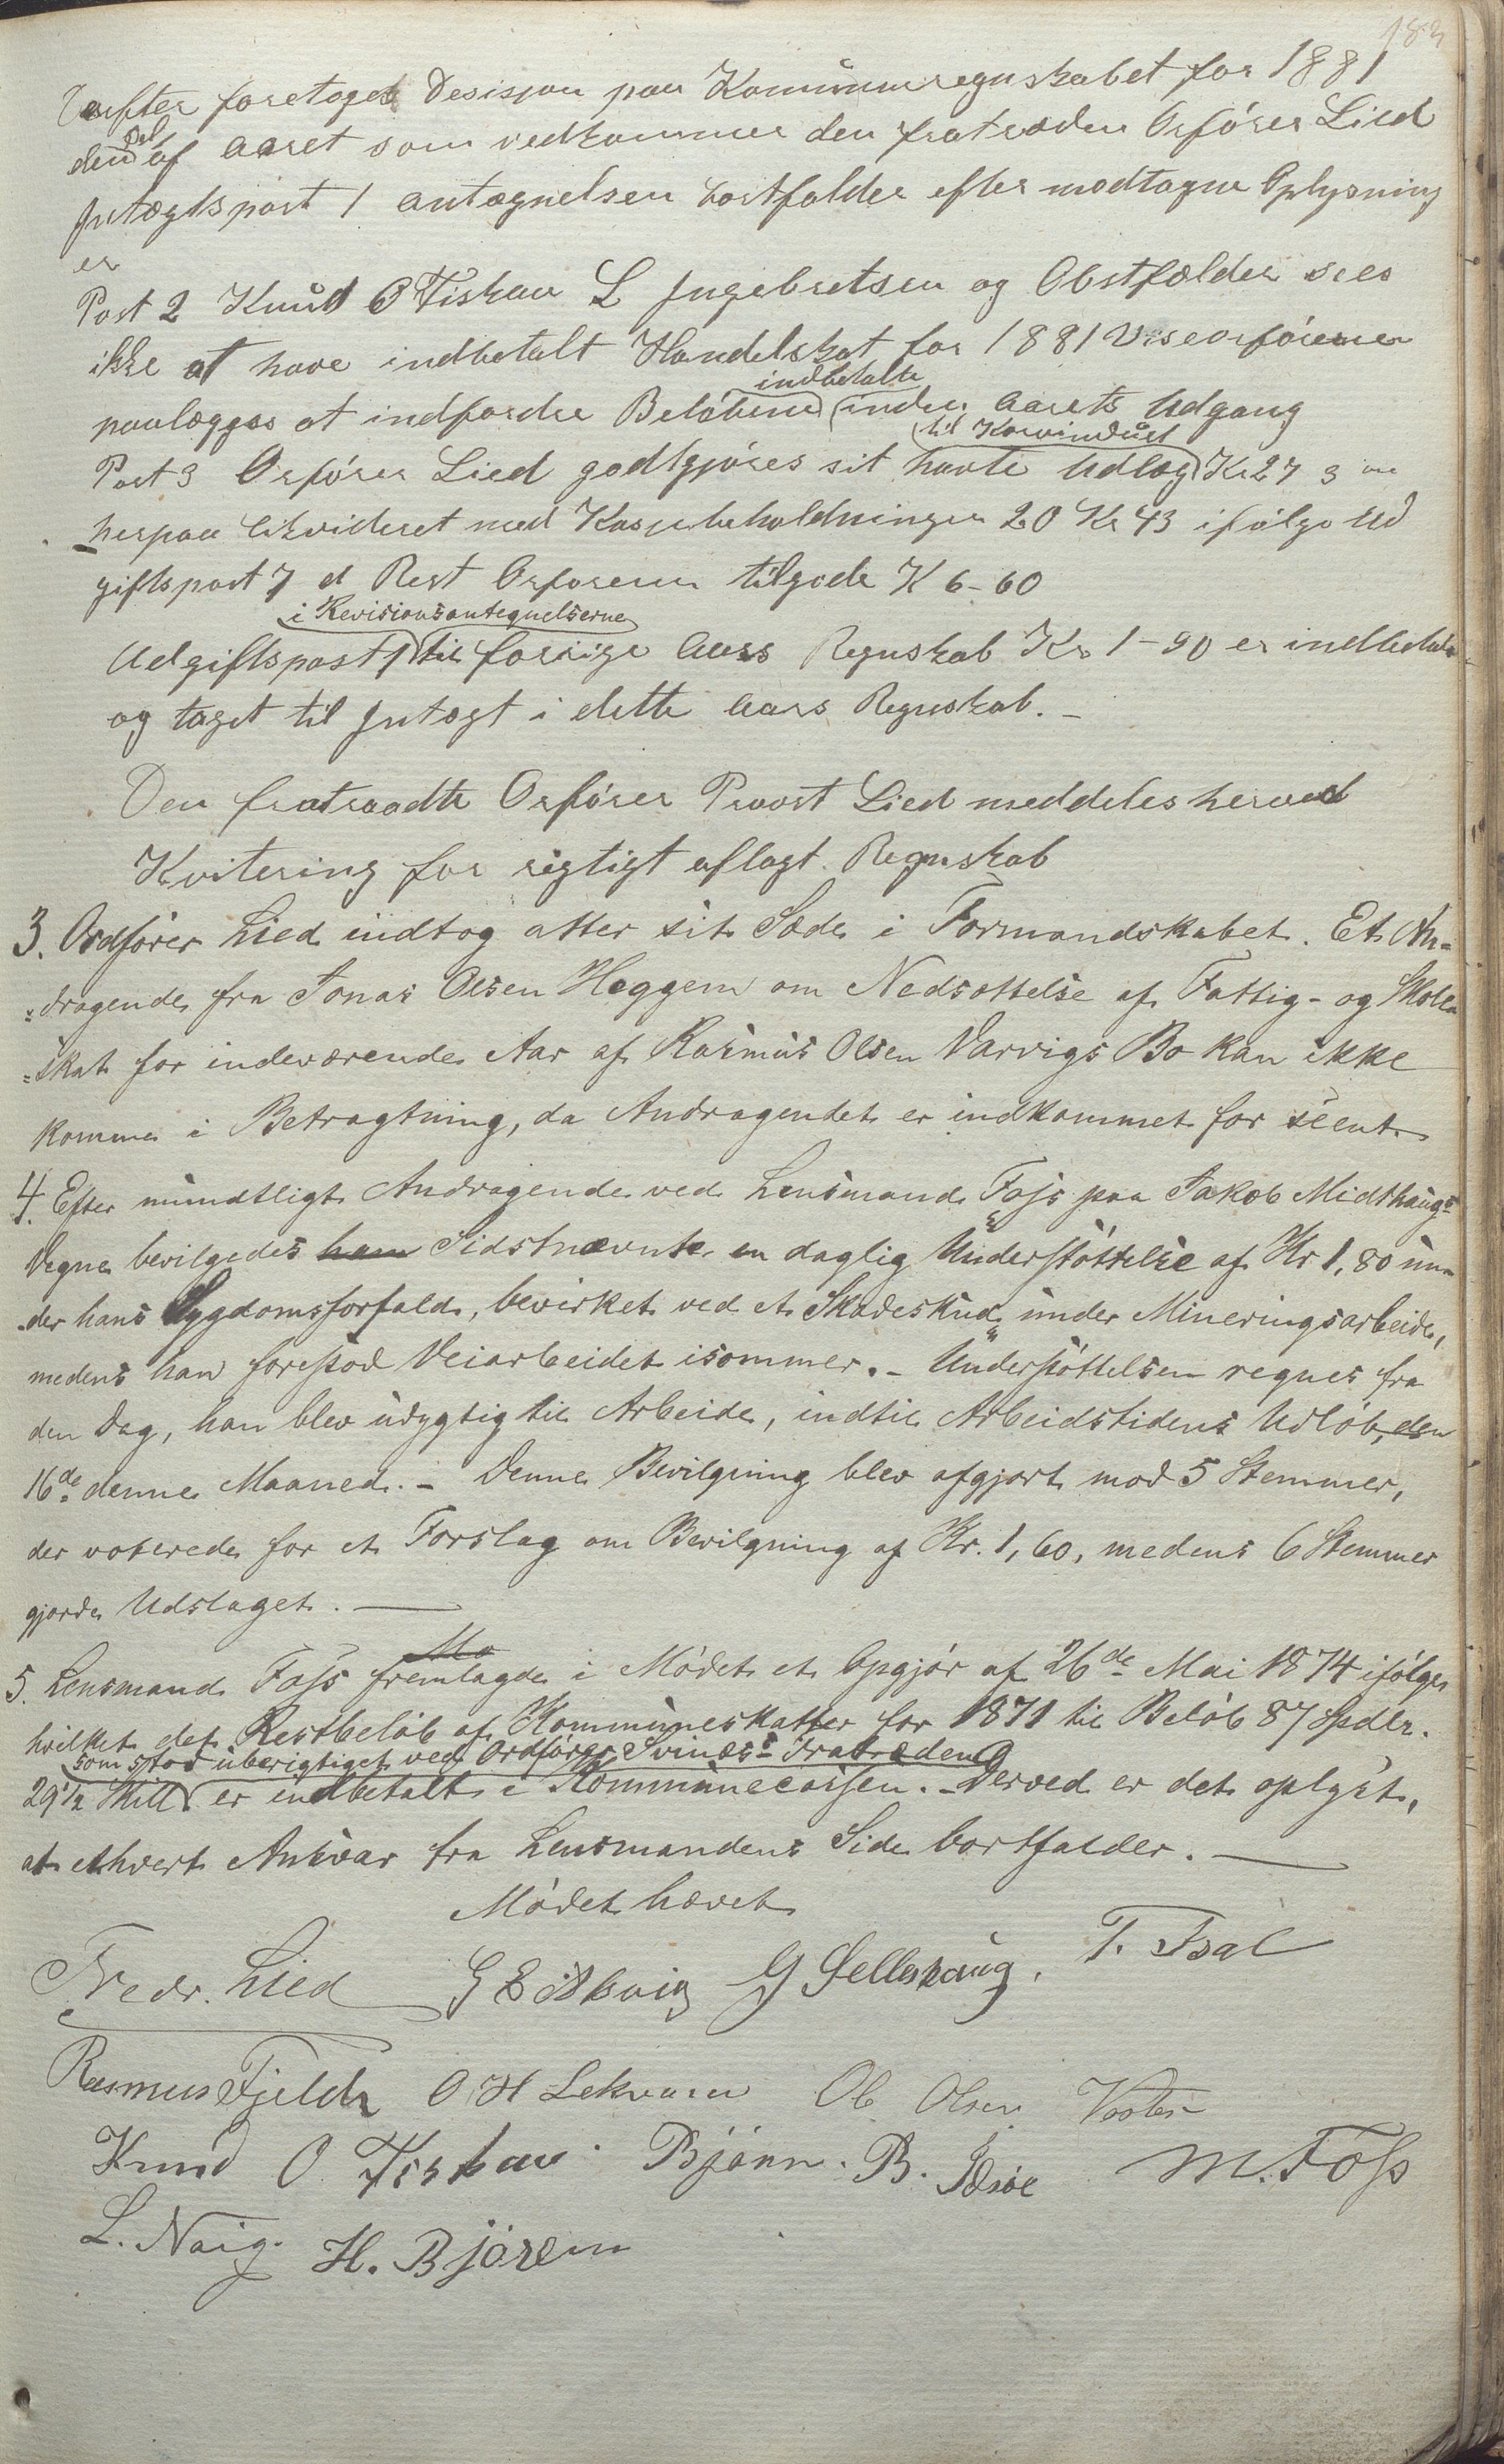 183
Derefter foretoges Desisjon paa Kommuneregnskabet for 1881
den del af aaret som vedkommer den fratræden Orfører Lied
Intægtspost 1 antegnelsen bortfalder efter modtagne Oplysning
er
Post 2 Knud O Fiskaa L Ingebretsen og Obstfelder sees
ikke at have indbetalt Handelskat for 1881 Viseorføreren
paalægges at indfordre Beløbene indbetalte inden Aarets Udgang
Post 3 Orfører Lied godtgjøres sit havte Udlæg til Korvinduet Kr 27 3 øre
herpaa likvideret med Kassebeholdningen 20 Kr 43 ifølge Ud
giftspost 7 d Rest Orføreren tilgode K 6-60
Udgiftspost 1 i Revisionsantegnelserne til forrige Aars Regnskab Kr 1-90 er indbetalt
og taget til Intægt i dette Aars Regnskab. -
Den fratraadte Orfører Provst Lied meddeles herved
Kvitering for rigtigt aflagt Regnskab
3. Ordfører Lied indtog atter sit Sæde i Formandskabet. Et An-
=dragende fra Jonas Olsen Heggem om Nedsættelse af Fattig- og Skole
=skat for indeværende Aar af Rasmus Olsen Varvigs Bo kan ikke
komme i Betragtning, da Andragendet er indkommet for seent.
4. Efter mundtligt Andragende ved Lensmand Foss paa Jakob Midthaugs
Vegne bevilgedes ham Sidstnævnte en daglig Understøttelse af Kr 1,80 un-
der hans Sygdomsforfald, bevirket ved et Skadeskud under Mineringsarbeide,
medens han forestod Veiarbeidet isommer. - Understøttelsen regnes fra
den Dag, han blev udygtig til Arbeide, indtil Arbeidstidens Udløb, den
16de denne Maaned. - Denne Bevilgning blev afgjort mod 5 Stemmer,
der voterede for et Forslag om Bevilgning af Kr. 1,60, medens 6 Stemmer
gjorde Udslaget. —
5. Lensmand Foss fremlagde i Mødet et Opgjør af 26de Mai 1874 ifølge
hvilket det Restbeløb af Kommuneskatter for 1871 til Beløb 87 Spdlr.
29 1/2 Skill som stod uberigtiget ved Ordfører Svinæs's Fratræden er indbetalt i Kommunecassen. - Derved er det oplyst,
at ethvert Ansvar fra Lensmandens Side bortfalder. —
Mødet hævet
Fredr. Lied G E G Sellshaug. T. Isal
Rasmus Fjelde O H Lekven Ole Olsen
Knud O Fiskaa Bjørn. B. M. Foss
L. Naig. H. Bjørem